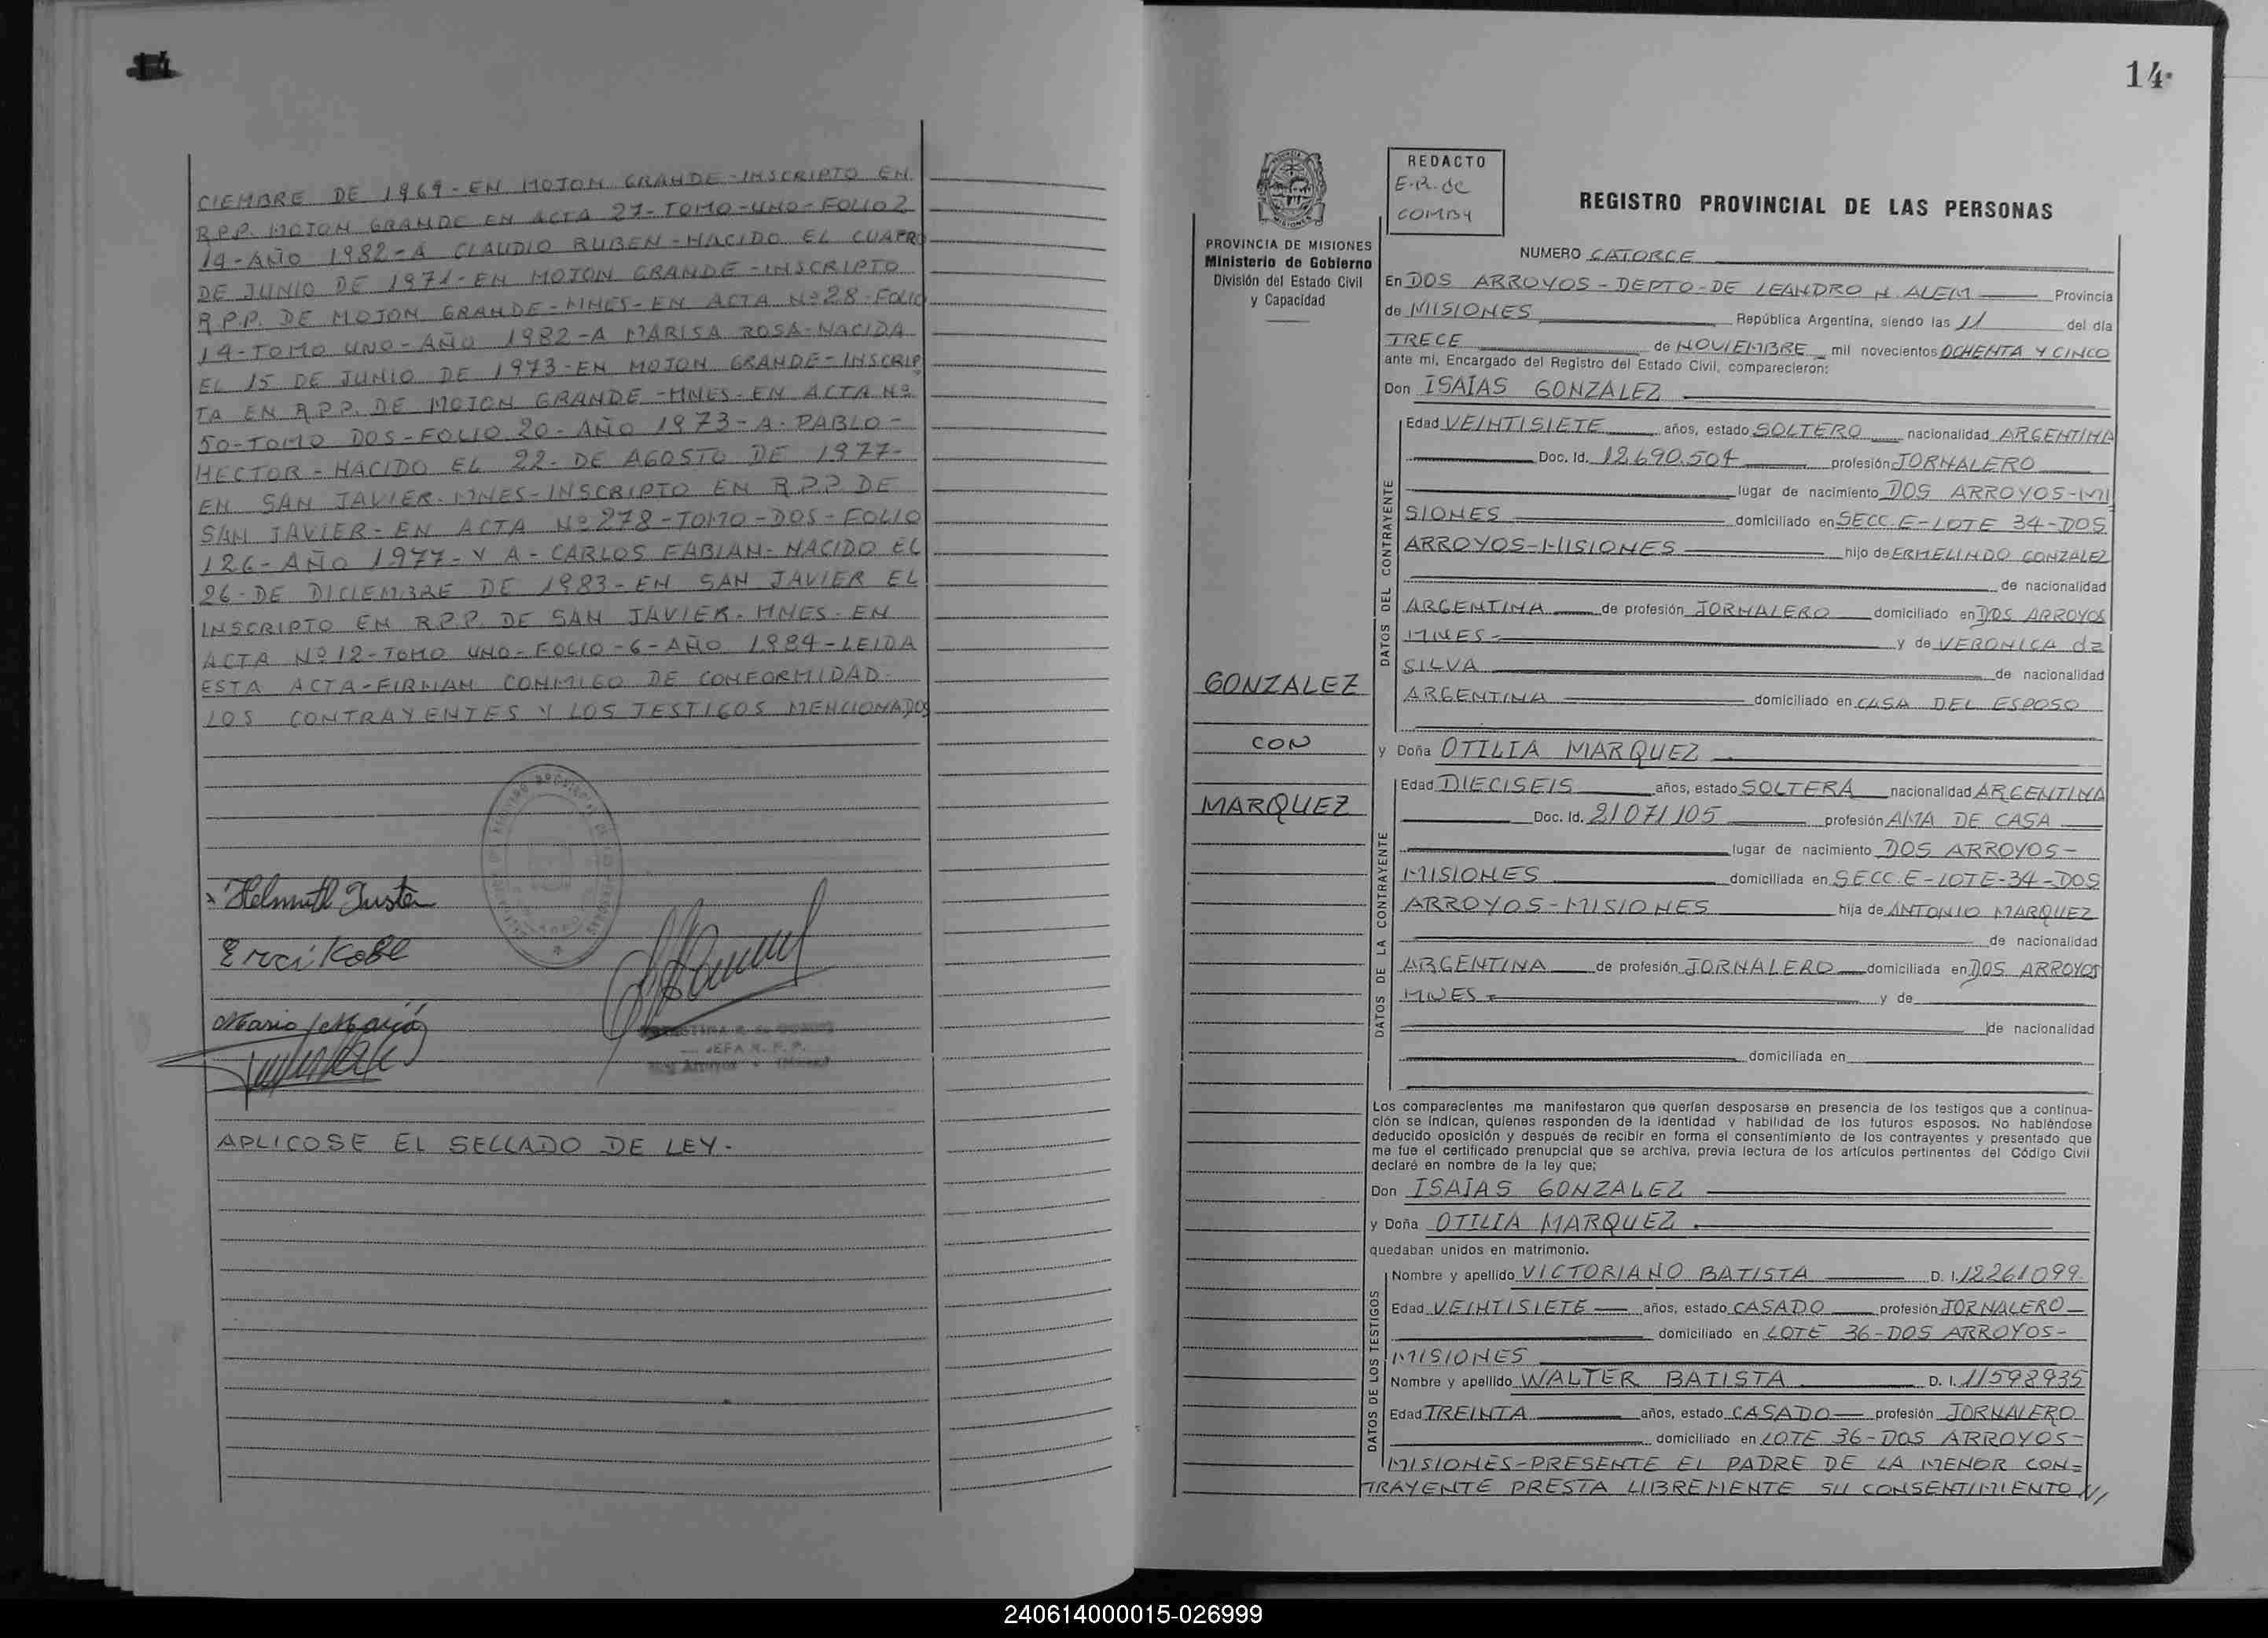 14
CIEMBRE DE 1969-EN MOJON GRANDE-INSCRIPTO EN
R.P.P. MOJON GRANDE EN ACTA 27-TOMO-UNO-FOLIO 2
14-AÑO 1982-A CLAUDIO RUBEN-NACIDO EL CUATRO
DE JUNIO DE 1971-EN MOJON GRANDE-INSCRIPTO
R.P.P. DE MOJON GRANDE-MNES-EN ACTA Nº28-FOLIO
14-TOMO UNO-AÑO 1982-A MARISA ROSA-NACIDA
EL 15 DE JUNIO DE 1973-EN MOJON GRANDE-INSCRIP
TA EN R.P.P. DE MOJON GRANDE-MNES-EN ACTA Nº
50-TOMO DOS-FOLIO 20-AÑO 1973-A-PABLO-
HECTOR-NACIDO EL 22-DE AGOSTO DE 1977-
EN SAN JAVIER-MNES-INSCRIPTO EN R.P.P. DE
SAN JAVIER-EN ACTA Nº278-TOMO-DOS-FOLIO
126-AÑO 1977-Y A-CARLOS FABIAN-NACIDO EL
26-DE DICIEMBRE DE 1983-EN SAN JAVIER EL
INSCRIPTO EN R.P.P. DE SAN JAVIER-MNES-EN
ACTA Nº12-TOMO UNO-FOLIO-6-AÑO 1984-LEIDA
ESTA ACTA-FIRMAN CONMIGO DE CONFORMIDAD-
LOS CONTRAYENTES Y LOS TESTIGOS MENCIONADOS
Helmuth
Erci Kobl
Mario
JEFA R. P. P.
APLICOSE EL SELLADO DE LEY-
14
REDACTO
E.R. de
COMBY
REGISTRO PROVINCIAL DE LAS PERSONAS
PROVINCIA DE MISIONES
Ministerio de Gobierno
División del Estado Civil
y Capacidad
GONZALEZ
CON
MARQUEZ
NUMERO CATORCE
En DOS ARROYOS-DEPTO-DE LEANDRO N. ALEM Provincia
de MISIONES República Argentina, siendo las 11 del día
TRECE de NOVIEMBRE mil novecientos OCHENTA Y CINCO
ante mí, Encargado del Registro del Estado Civil, comparecieron:
Don ISAIAS GONZALEZ
DATOS DEL CONTRAYENTE
Edad VEINTISIETE años, estado SOLTERO nacionalidad ARGENTINA
Doc. Id. 12.690.504 profesión JORNALERO
lugar de nacimiento DOS ARROYOS-MI
SIONES domiciliado en SECC.E-LOTE 34-DOS
ARROYOS-MISIONES hijo de ERMELINDO GONZALEZ
de nacionalidad
ARGENTINA de profesión JORNALERO domiciliado en DOS ARROYOS
MNES- y de VERONICA da
SILVA de nacionalidad
ARGENTINA domiciliado en CASA DEL ESPOSO
y Doña OTILIA MARQUEZ
DATOS DE LA CONTRAYENTE
Edad DIECISEIS años, estado SOLTERA nacionalidad ARGENTINA
Doc. Id. 21071105 profesión AMA DE CASA
lugar de nacimiento DOS ARROYOS-
MISIONES domiciliada en SECC.E-LOTE-34-DOS
ARROYOS-MISIONES hija de ANTONIO MARQUEZ
de nacionalidad
ARGENTINA de profesión JORNALERO domiciliada en DOS ARROYOS
MNES- y de
de nacionalidad
domiciliada en
Los comparecientes me manifestaron que querían desposarse en presencia de los testigos que a continua-
ción se indican, quienes responden de la identidad y habilidad de los futuros esposos. No habiéndose
deducido oposición y después de recibir en forma el consentimiento de los contrayentes y presentado que
me fue el certificado prenupcial que se archiva, previa lectura de los artículos pertinentes del Código Civil
declaré en nombre de la ley que:
Don ISAIAS GONZALEZ
y Doña OTILIA MARQUEZ
quedaban unidos en matrimonio.
DATOS DE LOS TESTIGOS
Nombre y apellido VICTORIANO BATISTA D. I. 12261099
Edad VEINTISIETE años, estado CASADO profesión JORNALERO
domiciliado en LOTE 36-DOS ARROYOS-
MISIONES
Nombre y apellido WALTER BATISTA D. I. 11598935
Edad TREINTA años, estado CASADO profesión JORNALERO
domiciliado en LOTE 36-DOS ARROYOS-
MISIONES-PRESENTE EL PADRE DE LA MENOR CON=
TRAYENTE PRESTA LIBREMENTE SU CONSENTIMIENTO///
240614000015-026999